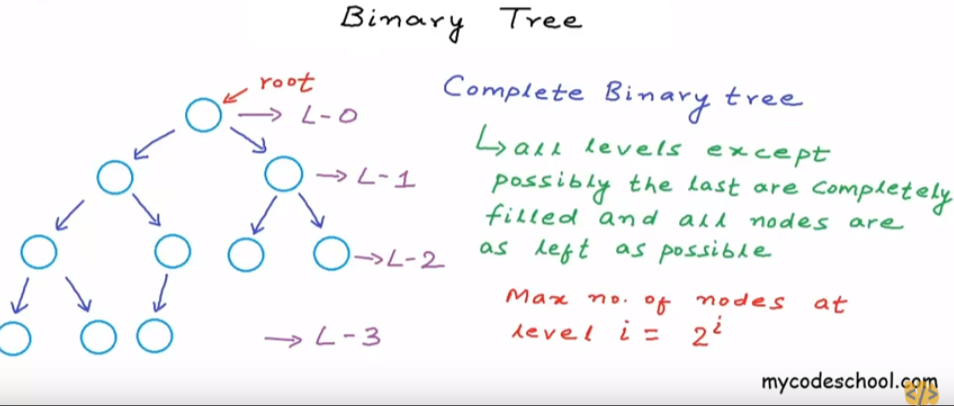 Binary Tree
root
Complete Binary tree
L-0
↳all levels except
L-1
possibly the last are completely
filled and all nodes are
L-2
as left as possible
Max no. of nodes at
level i = 2^i
L-3
mycodeschool.com
</>